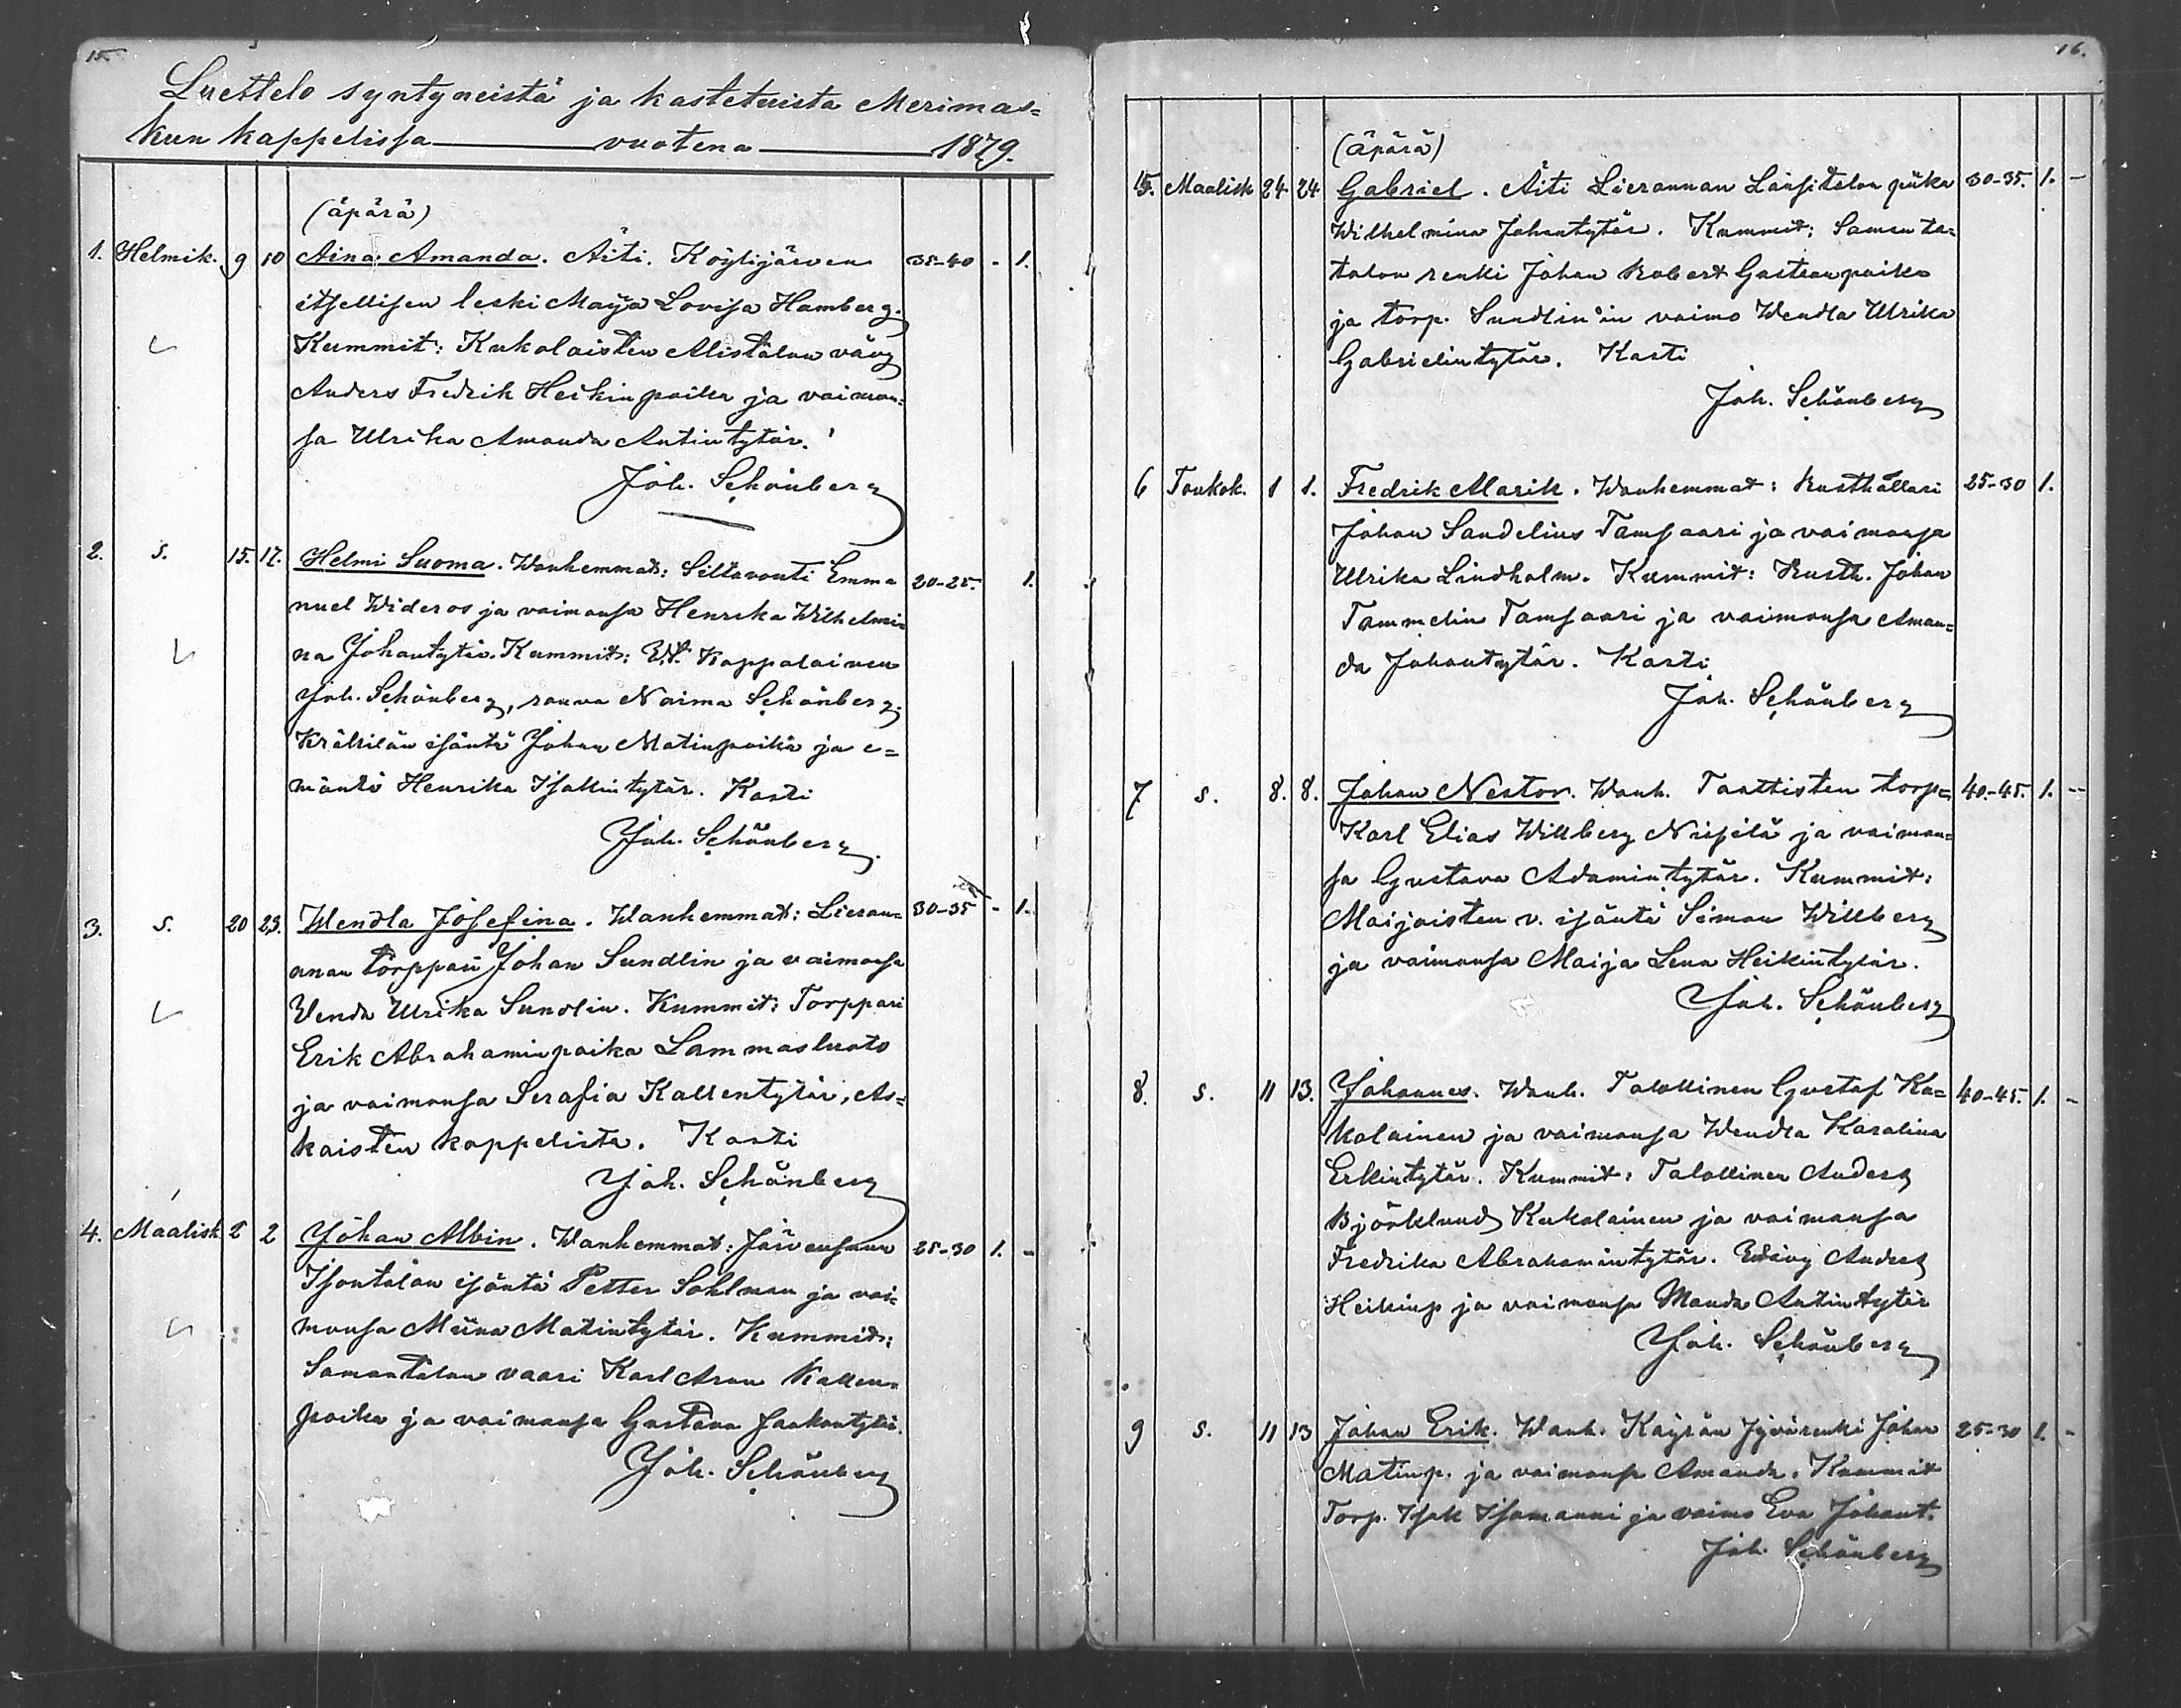 15.
Luettelo syntyneistä ja kastetuista Merimas=
kun kappelissa vuotena 1879.
(äpärä)
1. Helmik. 9 10 Aina Amanda. Äiti. Köylijärven 35-40 - 1.
itsellisen leski Maija Lovisa Hamberg.
Kummit: Kukolaisten Alistalon vävy
Anders Fredrik Heikinpoika ja vaimon=
sa Ulrika Amanda Antintytär.
Joh. Schönberg
2. s. 15. 17. Helmi Suoma. Wanhemmat: Siltavouti Emma 20-25. 1.
nuel Wideros ja vaimonsa Henrika Wilhelmi=
na Johantytär. Kummit: Kappalainen
Joh. Schönberg, rouva Naima Schönberg.
isäntä Johan Matinpoika ja e=
mäntä Henrika Isakintytär. Kasti
Joh. Schönberg.
3. s. 20 23. Wendla Josefina. Wanhemmat: Lieran= 30-35 - 1.
nan torppari Johan Sundlin ja vaimonsa
Venda Ulrika Sundlin. Kummit: Torppari
Erik Abrahaminpoika Lammasluoto
ja vaimonsa Serafia Kallentytär, As=
kaisten kappelista. Kasti
Joh. Schönberg
4. Maalisk. 2 2 Johan Albin. Wanhemmat: Järvensuun 25-30 1. -
Isontalon isäntä Petter Sohlman ja vai=
monsa Miina Matintytär. Kummit:
Samantalon vaari Karl Aron Kallen=
poika ja vaimonsa Gustava Jaakontytär.
Joh. Schönberg
16.
(äpärä)
5. Maalisk 24 24 Gabriel. Äiti Lierannan Länsitalon piika 30-35. 1. -
Wilhelmina Johantytär. Kummit: Saman ta=
talon renki Johan Robert Gustavnpoika
ja torp. Sundlin'in vaimo Wendla Ulrika
Gabrielintytär. Kasti
Joh. Schönberg
6 Toukok. 1 1. Fredrik Alarik. Wanhemmat: Rusthållari 25-30 1.
Johan Sandelius Tamsaari ja vaimonsa
Ulrika Lindholm. Kummit: Rusth. Johan
Tammelin Tamsaari ja vaimonsa Aman=
da Johantytär. Kasti
Joh. Schönberg
7 s. 8. 8. Johan Nestor. Wanh. Taattisten torp= 40-45. 1. -
Karl Elias Willberg Niipilä ja vaimon=
sa Gustava Adamintytär. Kummit:
Maijaisten v. isäntä Simon Willberg
ja vaimonsa Maija Lena Heikintytär.
Joh. Schönberg
8. s. 11 13. Johannes. Wanh. Talollinen Gustaf Ku= 40-45. 1. -
kolainen ja vaimonsa Wendla Karolina
Erkintytär. Kummit: Talollinen Anders
Björklund Kukolainen ja vaimonsa
Fredrika Abrahamintytär. Anders
Heikinp ja vaimonsa Manda Antintytär
Joh. Schönberg
9 s. 11 13 Johan Erik. Wanh. Käyrän Jyvärenki Johan 25-30 1. -
Matinp. ja vaimonsa Amanda. Kummit
Torp. Isak Isomanni ja vaimo Eva Johant.
Joh. Schönberg